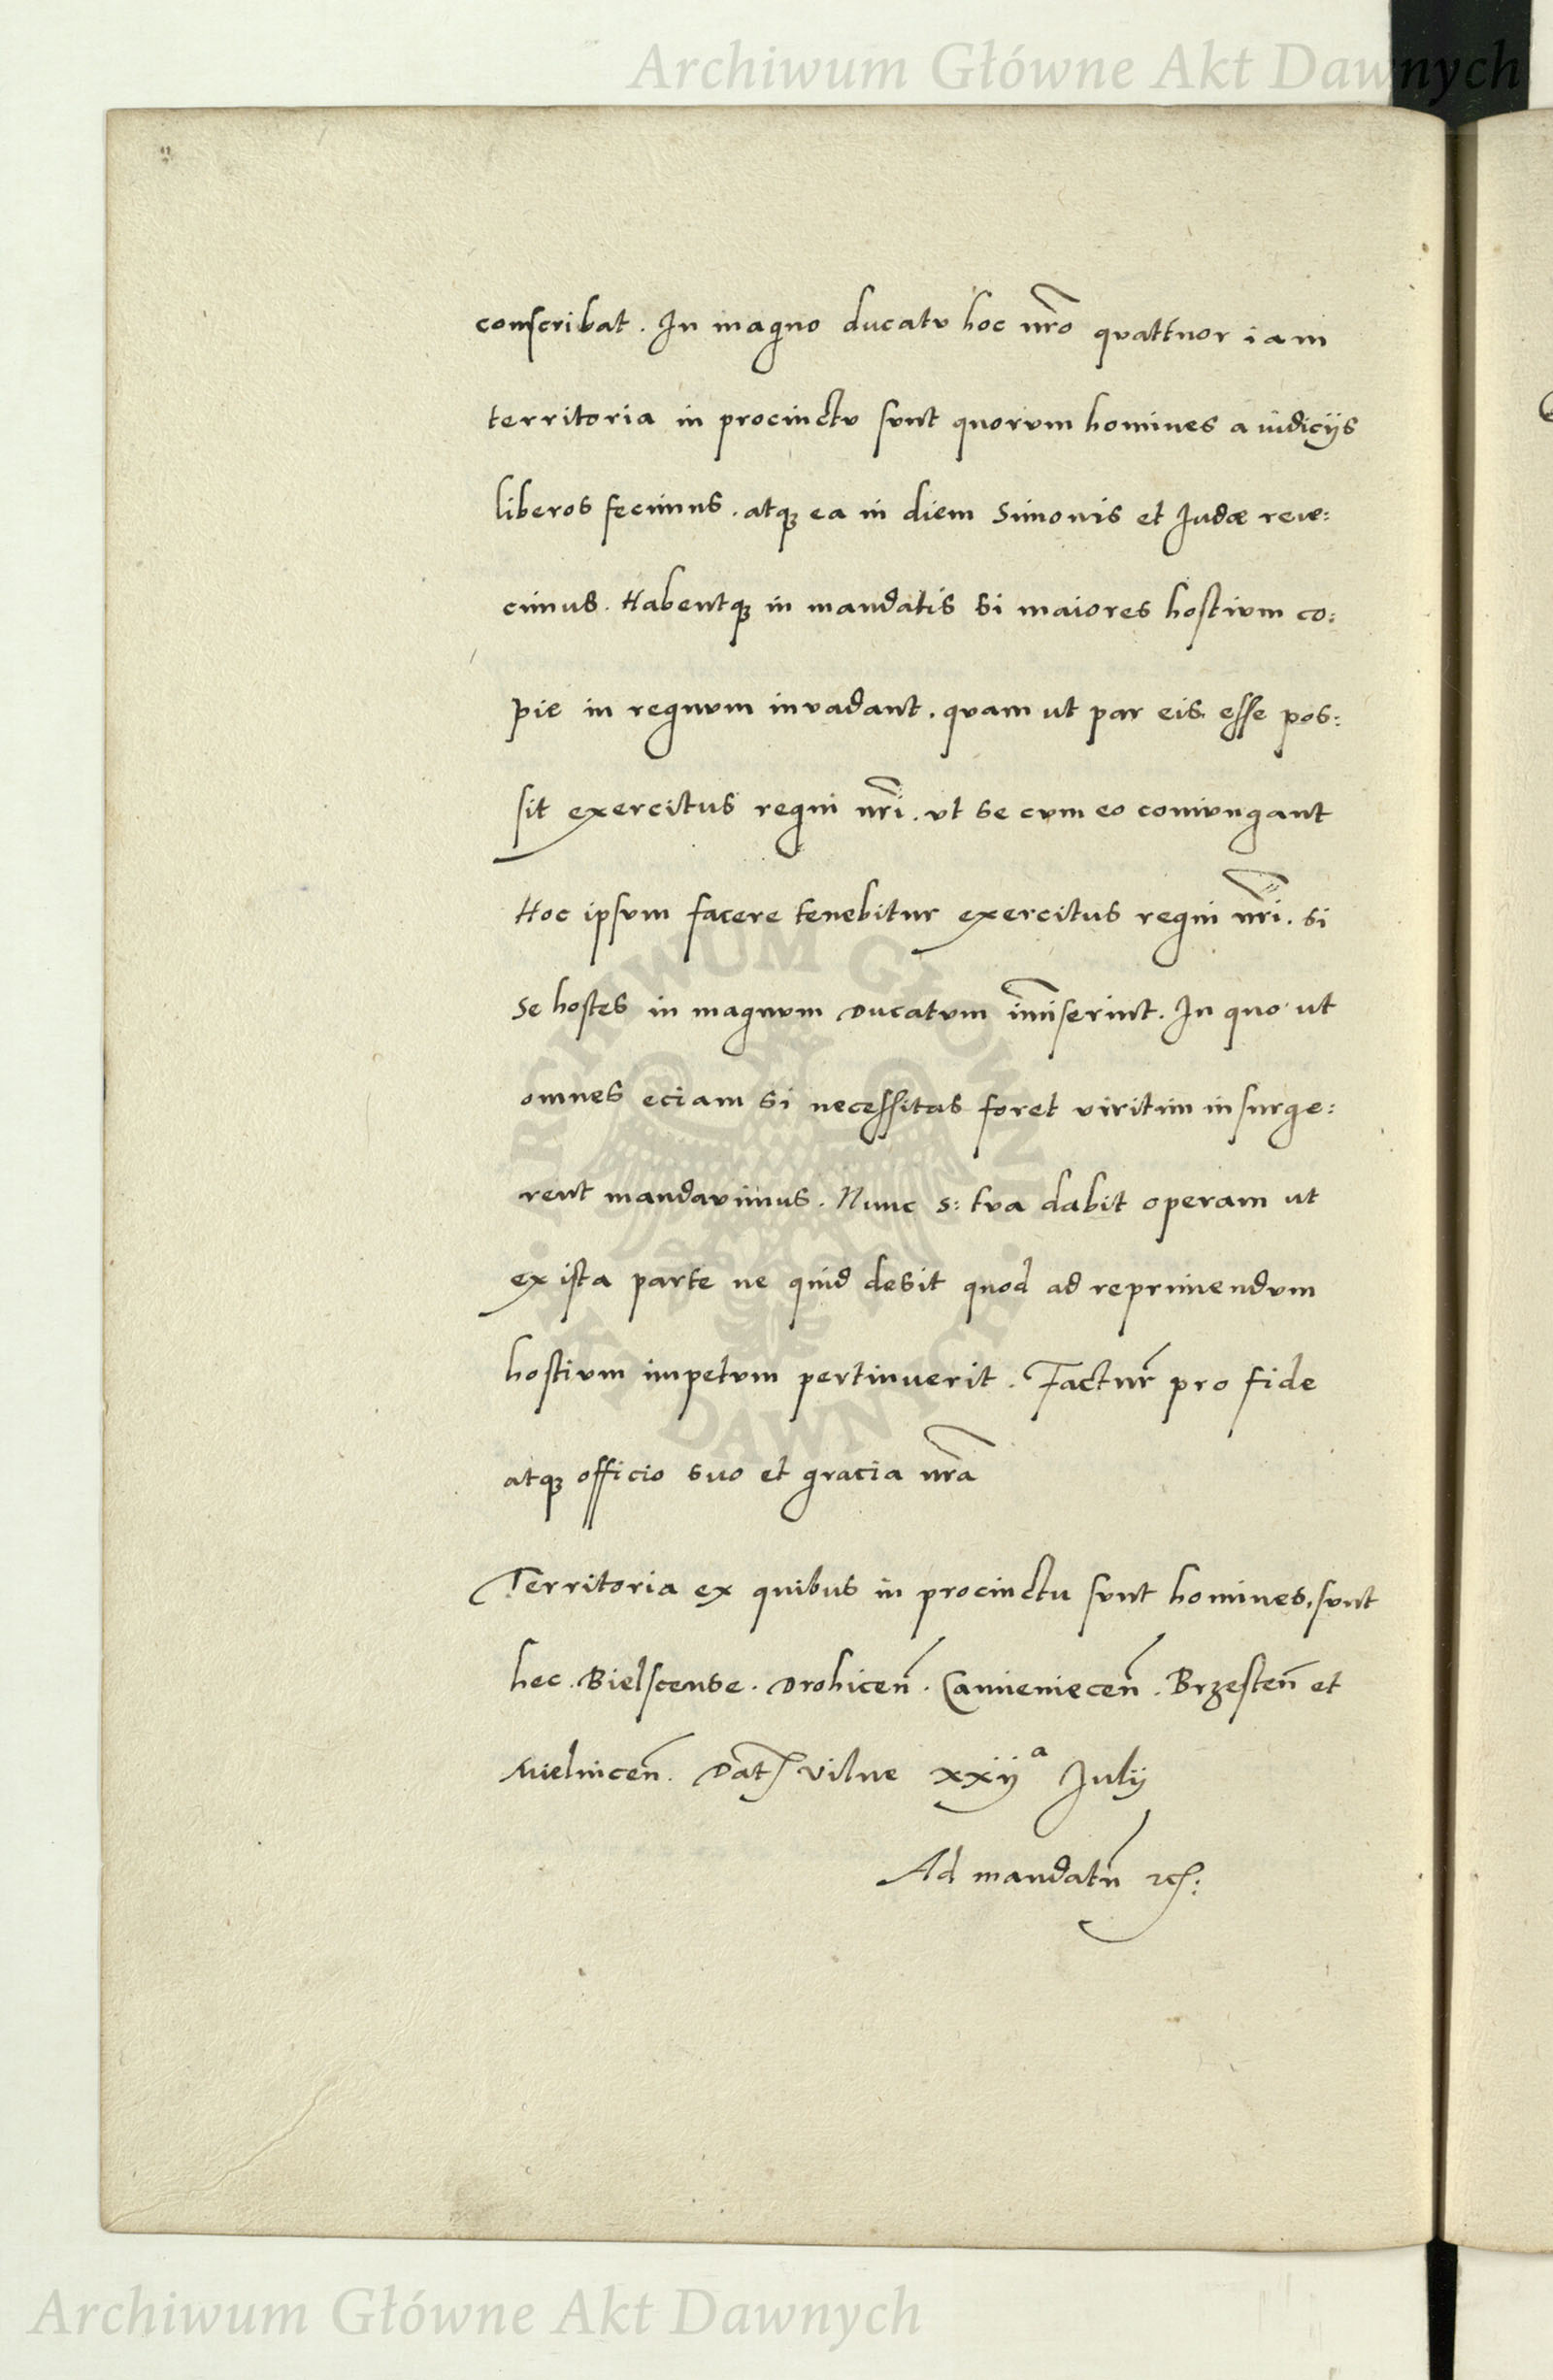 Archiwum Główne Akt Dawnych
conscribat. In magno ducatu hoc nro quattuor iam
territoria in procinctu sunt quorum homines a iudicijs
liberos fecimus. atq; ea in diem Simonis et Judæ reie:
cimus. Habentq; in mandatis si maiores hostium co:
pie in regnum invadant. quam ut par eis esse pos:
sit exercitus regni nri. ut se cum eo coniungant
Hoc ipsum facere tenebitur exercitus regni nri. si
se hostes in magnum Ducatum imiserint. In quo ut
omnes eciam si necessitas foret viritim insurge:
rent mandavimus. Nunc s: tua dabit operam ut
ex ista parte ne quid desit quod ad reprimendum
hostium impetum pertinuerit. Factur pro fide
atq; officio suo et gracia nra
Territoria ex quibus in procinctu sunt homines, sunt
hec. Bielscense. Drohicen. Camieniecen. Brzesten et
Mielnicen. Dat Vilne xxijª Julij
Ad mandatu etc:
ARCHIWUM GŁÓWNE AKT DAWNYCH
Archiwum Główne Akt Dawnych